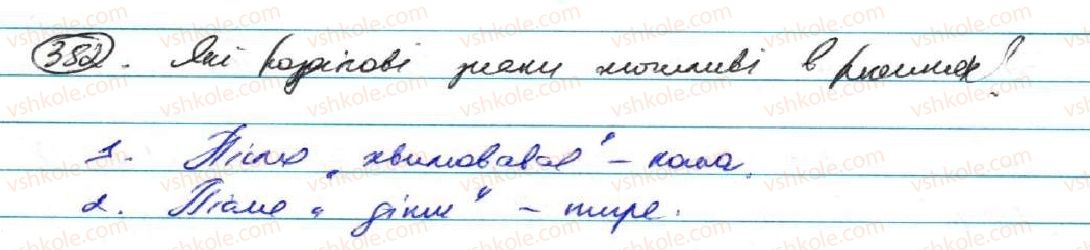 382. Які розділові знаки можливі в реченнях?
1. Після „хвилювався" - кома.
2. Після „дівчи" - тире.